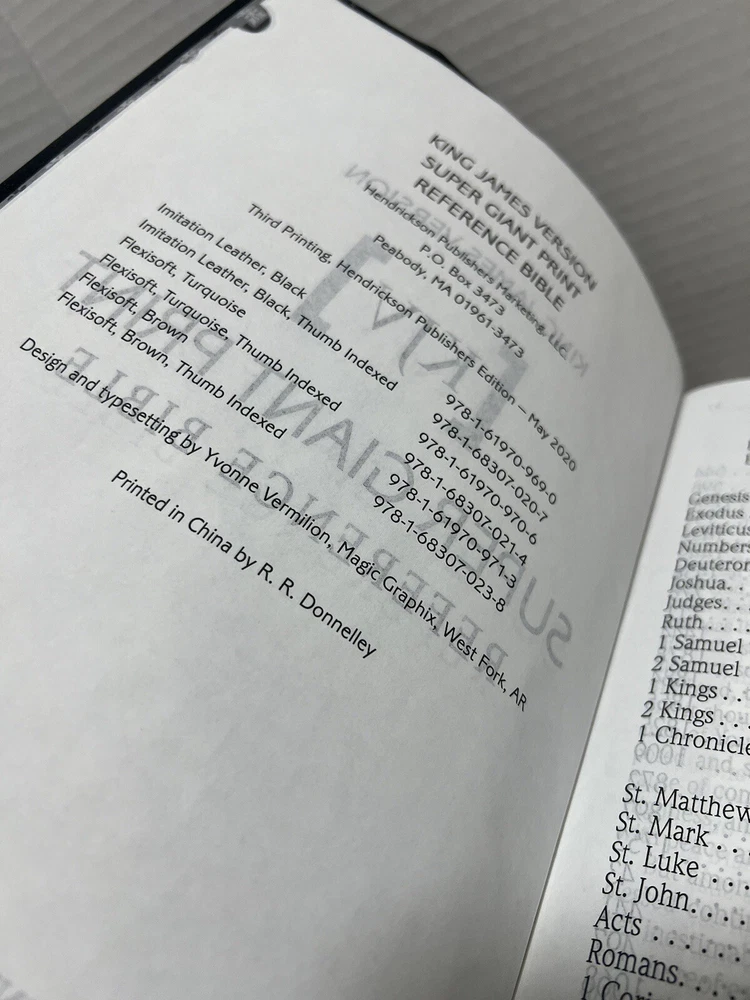 KING JAMES VERSION
SUPER GIANT PRINT
REFERENCE BIBLE
Hendrickson Publishers Marketing, LLC
P.O. Box 3473
Peabody, MA 01961-3473
Third Printing, Hendrickson Publishers Edition — May 2020
Imitation Leather, Black 978-1-61970-969-0
Imitation Leather, Black, Thumb Indexed 978-1-68307-020-7
Flexisoft, Turquoise 978-1-61970-970-6
Flexisoft, Turquoise, Thumb Indexed 978-1-68307-021-4
Flexisoft, Brown 978-1-61970-971-3
Flexisoft, Brown, Thumb Indexed 978-1-68307-023-8
Design and typesetting by Yvonne Vermilion, Magic Graphix, West Fork, AR
Printed in China by R. R. Donnelley
Genesis
Exodus
Leviticus
Numbers
Deuteron
Joshua. .
Judges. . .
Ruth . . . .
1 Samuel
2 Samuel
1 Kings . .
2 Kings . . .
1 Chronicle
St. Matthew
St. Mark . . .
St. Luke . . .
St. John. . . .
Acts . . . . . .
Romans. . .